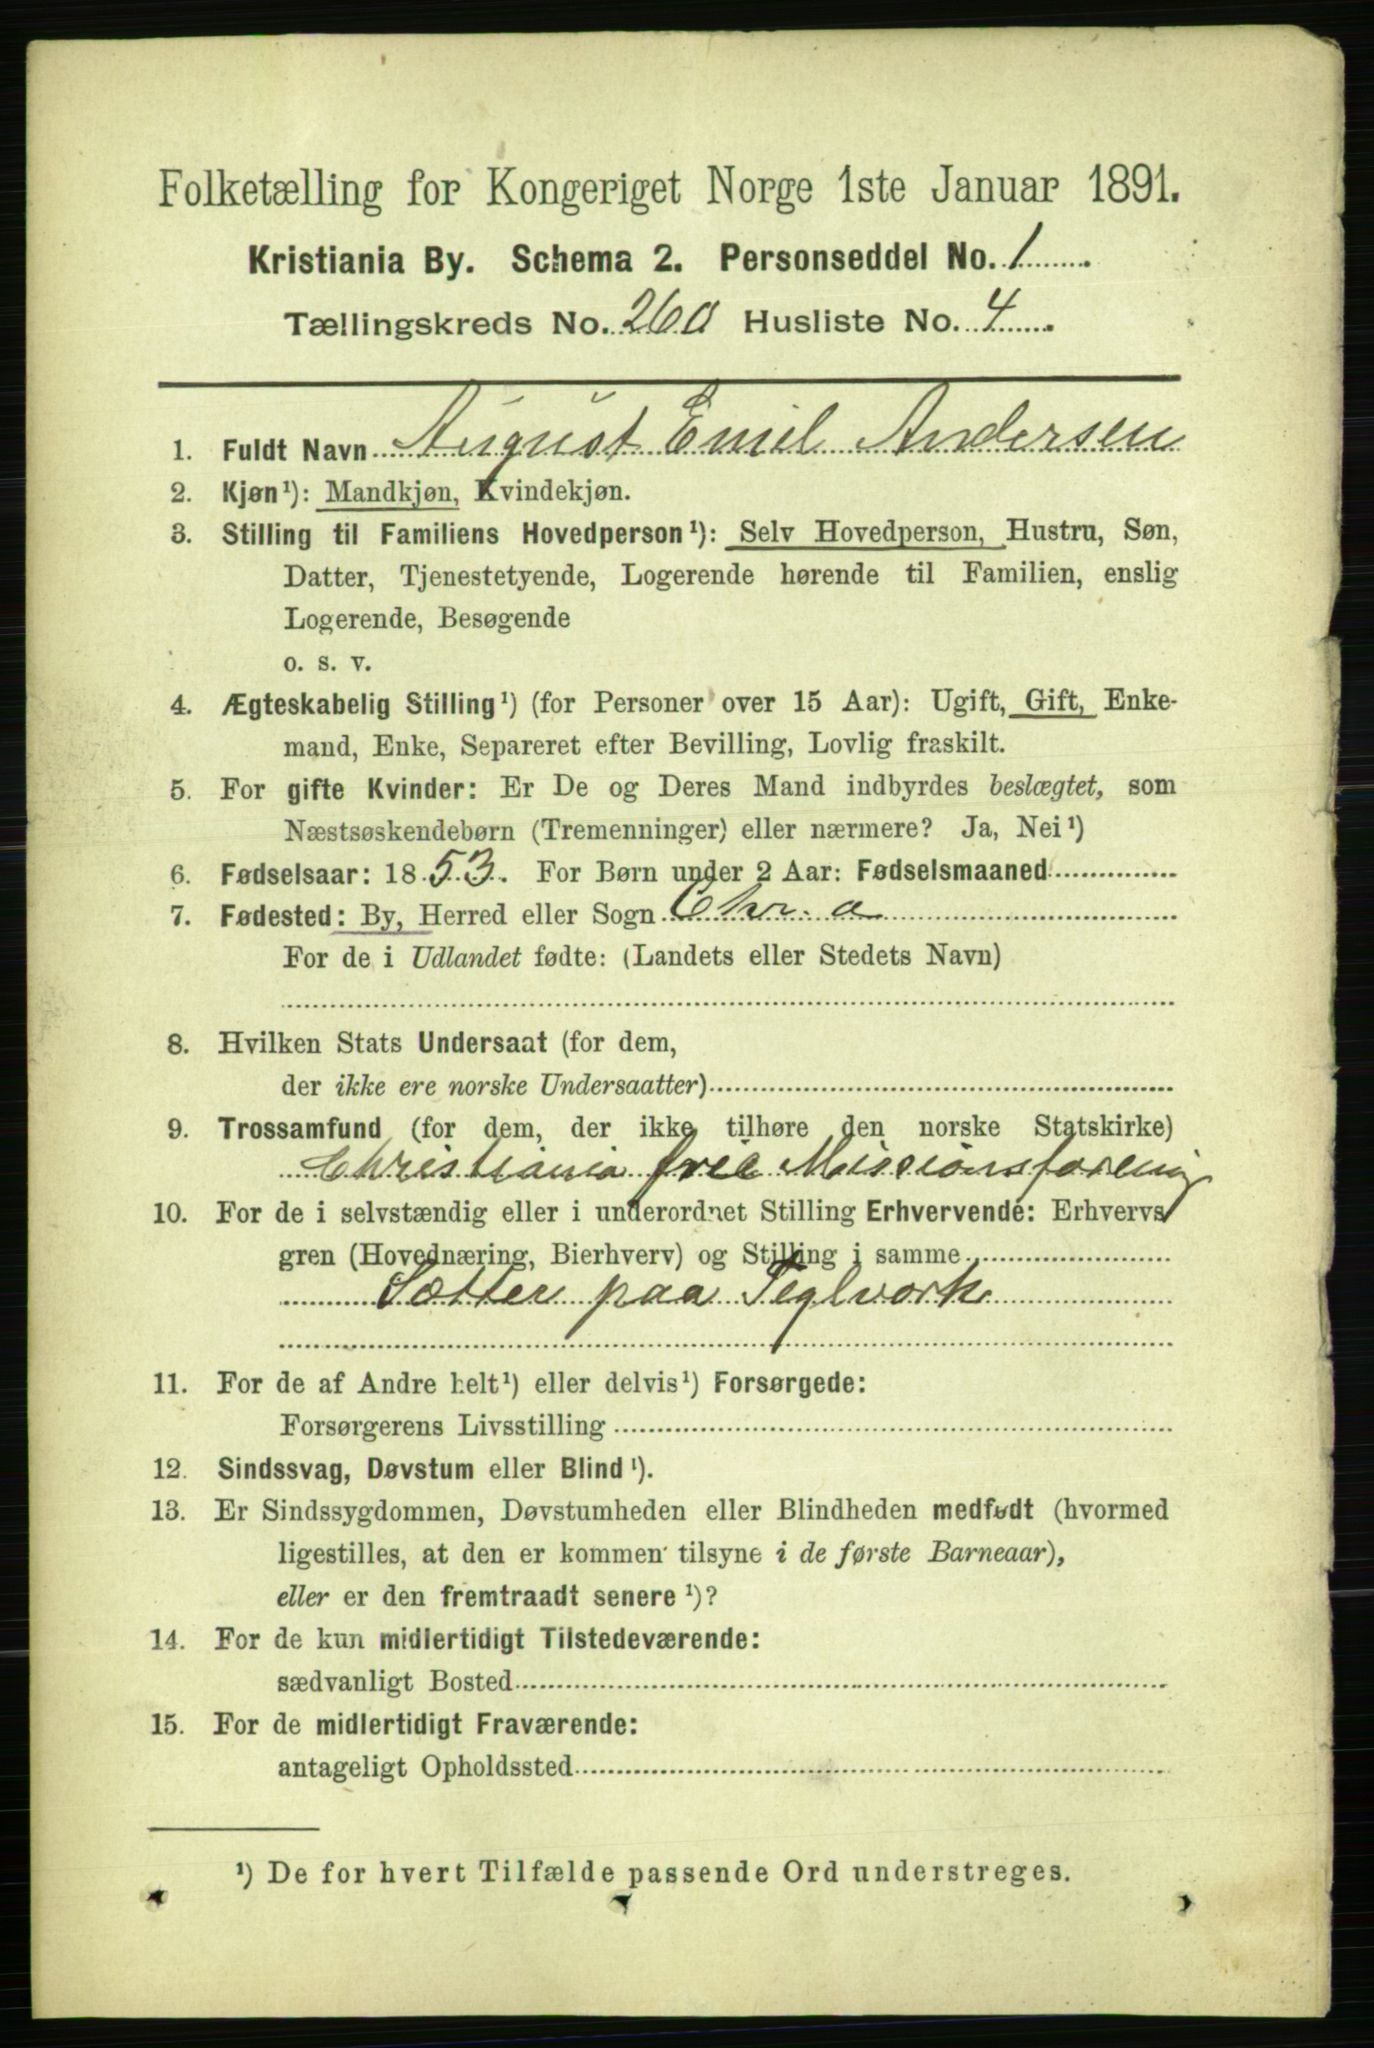 Folketælling for Kongeriget Norge 1ste Januar 1891.
Kristiania By. Schema 2. Personseddel No. 1
Tællingskreds No. 260 Husliste No. 4
1. Fuldt Navn August Emil Andersen
2. Kjøn¹): Mandkjøn, Kvindekjøn.
3. Stilling til Familiens Hovedperson¹): Selv Hovedperson, Hustru, Søn,
Datter, Tjenestetyende, Logerende hørende til Familien, enslig
Logerende, Besøgende
o. s. v.
4. Ægteskabelig Stilling¹) (for Personer over 15 Aar): Ugift, Gift, Enke-
mand, Enke, Separeret efter Bevilling, Lovlig fraskilt.
5. For gifte Kvinder: Er De og Deres Mand indbyrdes beslægtet, som
Næstsøskendebørn (Tremenninger) eller nærmere? Ja, Nei¹)
6. Fødselsaar: 1853. For Børn under 2 Aar: Fødselsmaaned
7. Fødested: By, Herred eller Sogn Chr.a
For de i Udlandet fødte: (Landets eller Stedets Navn)
8. Hvilken Stats Undersaat (for dem,
der ikke ere norske Undersaatter)
9. Trossamfund (for dem, der ikke tilhøre den norske Statskirke)
Christiania frie Missionsforening
10. For de i selvstændig eller i underordnet Stilling Erhvervende: Erhvervs
gren (Hovednæring, Bierhverv) og Stilling i samme
Sætter paa Teglværk
11. For de af Andre helt¹) eller delvis¹) Forsørgede:
Forsørgerens Livsstilling
12. Sindssvag, Døvstum eller Blind¹).
13. Er Sindssygdommen, Døvstumheden eller Blindheden medfødt (hvormed
ligestilles, at den er kommen tilsyne i de første Barneaar),
eller er den fremtraadt senere¹)?
14. For de kun midlertidigt Tilstedeværende:
sædvanligt Bosted
15. For de midlertidigt Fraværende:
antageligt Opholdssted
¹) De for hvert Tilfælde passende Ord understreges.